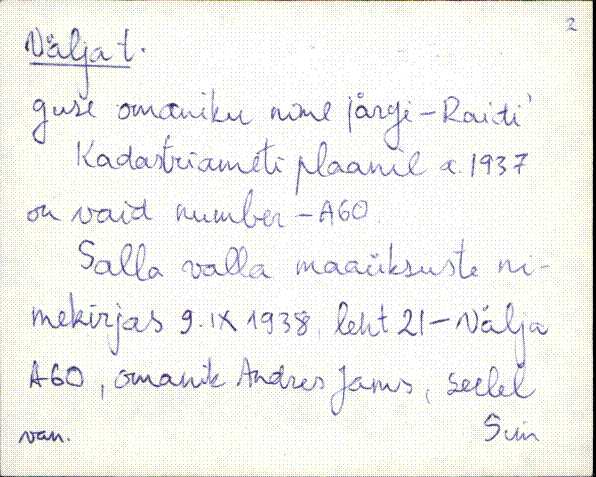 2
Välja t.
guse omaniku nime järgi - Raidi
Kadastriameti plaanil a. 1937
on vaid number - A60.
Salla valla maaüksuste ni-
mekirjas 9. IX 1938, leht 21 - Välja
A60, omanik Andres Jams, seelel
van. Sim